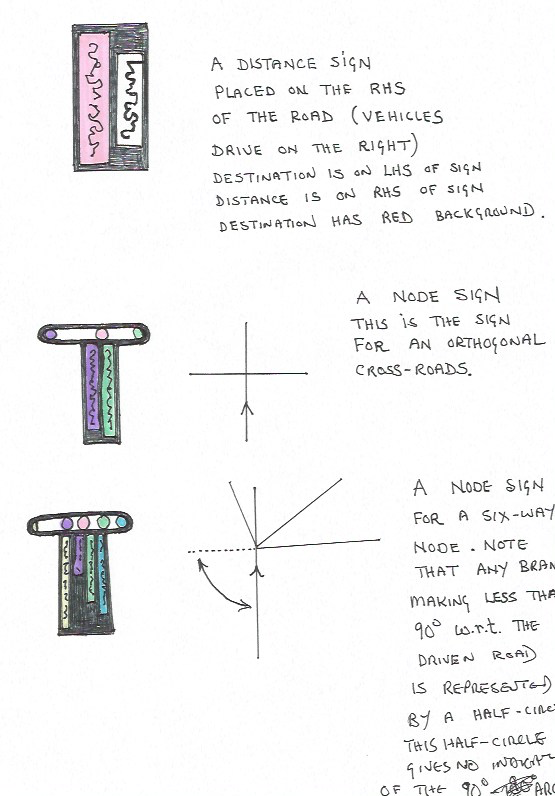 A DISTANCE SIGN
PLACED ON THE RHS
OF THE ROAD (VEHICLES
DRIVE ON THE RIGHT)
DESTINATION IS ON LHS OF SIGN
DISTANCE IS ON RHS OF SIGN
DESTINATION HAS RED BACKGROUND.
A NODE SIGN
THIS IS THE SIGN
FOR AN ORTHOGONAL
CROSS-ROADS.
A NODE SIGN
FOR A SIX-WAY
NODE. NOTE
THAT ANY BRAN
MAKING LESS THA
90° w.r.t. THE
DRIVEN ROAD
IS REPRESENTED
BY A HALF-CIRC
THIS HALF-CIRCLE
GIVES NO INDICAT
OF THE 90° ARC